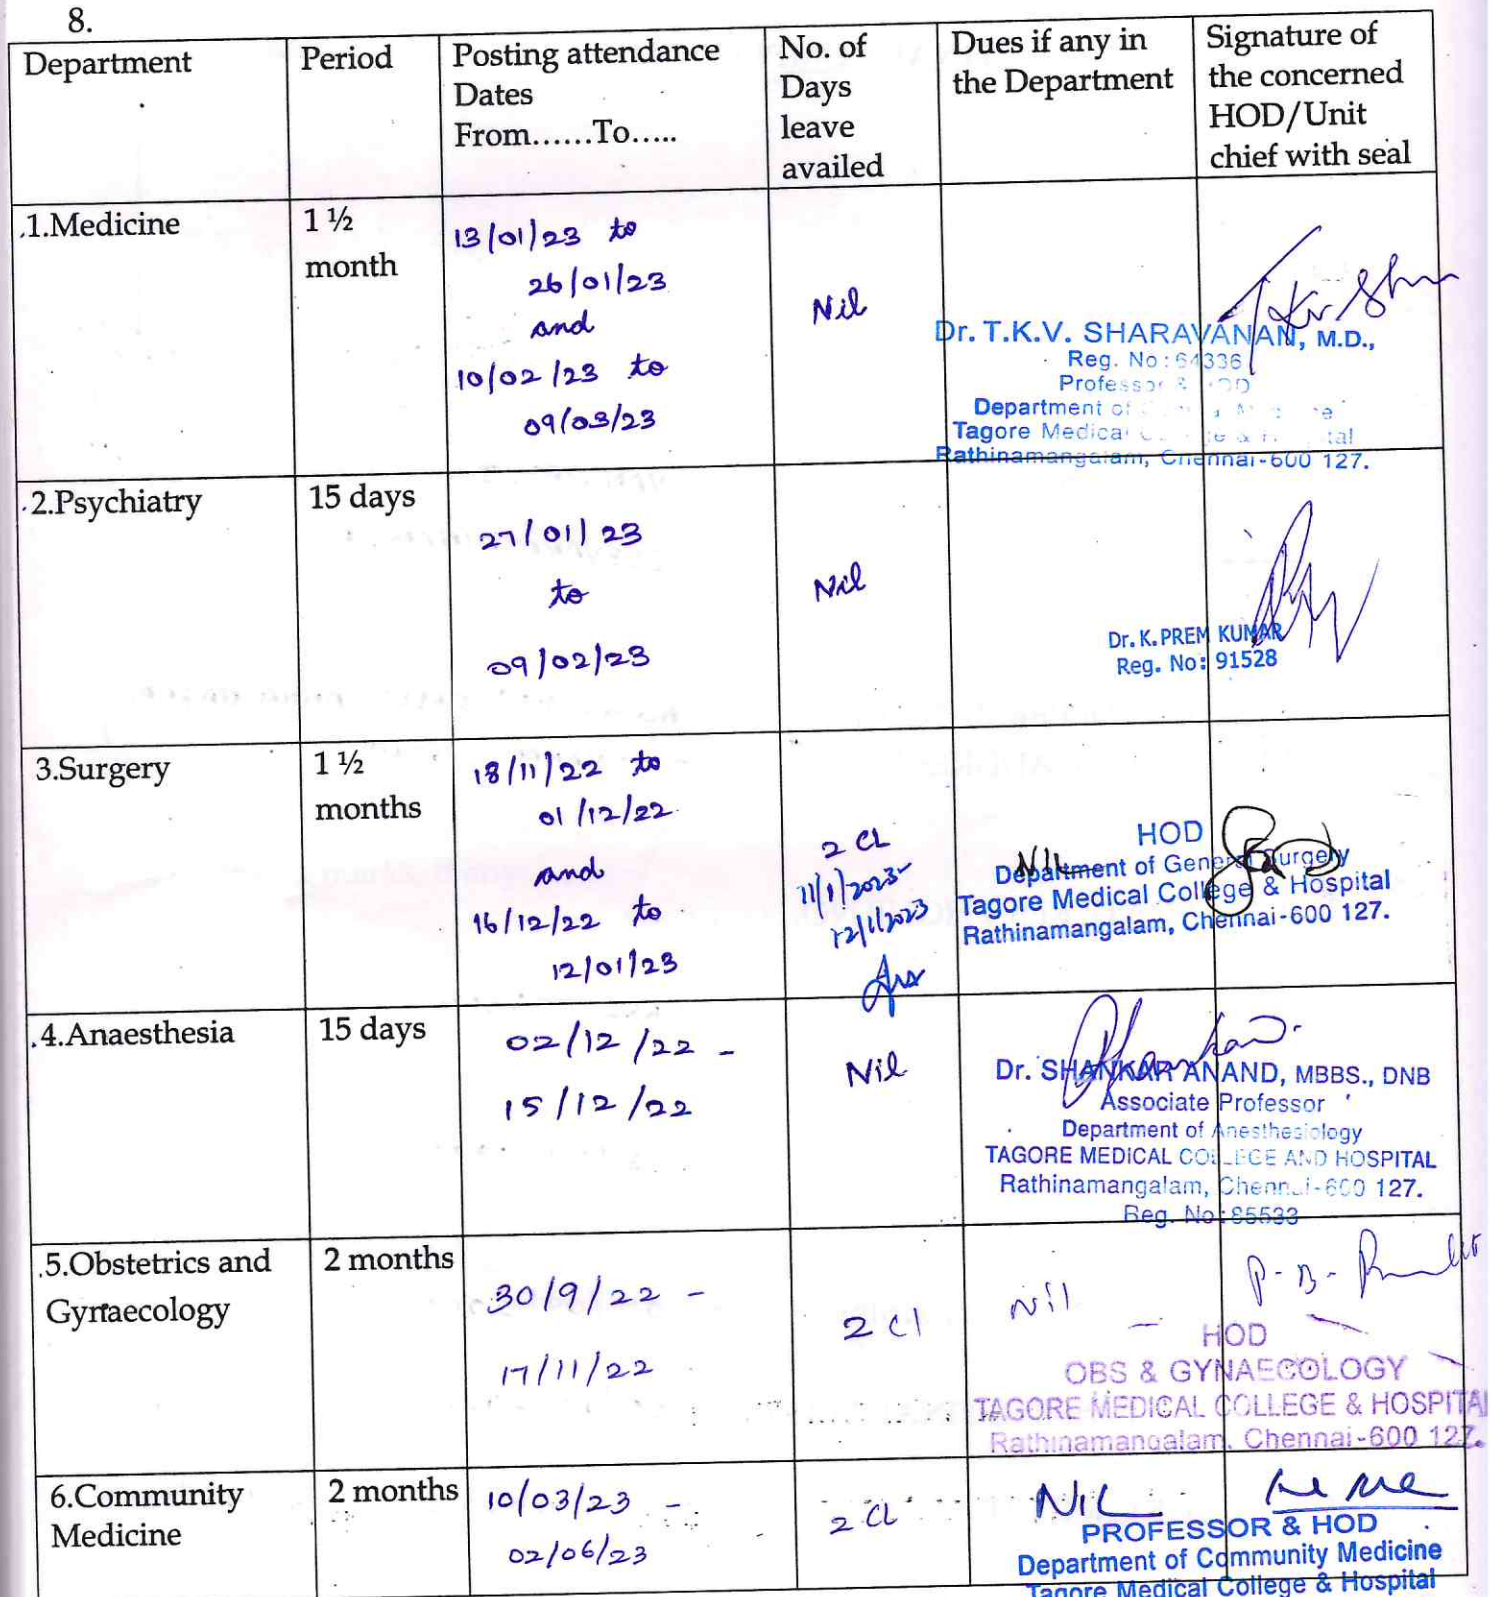 8.
Department
Period
Posting attendance
Dates
From......To.....
No. of
Days
leave
availed
Dues if any in
the Department
Signature of
the concerned
HOD/Unit
chief with seal
.1.Medicine
1 ½
month
13/01/23 to
26/01/23
and
10/02/23 to
09/03/23
Nil
Dr. T.K.V. SHARAVANAN, M.D.,
Reg. No: 64336
Professor & HOD
Department of
Tagore Medical
Rathinamangalam, Chennai-600 127.
.2.Psychiatry
15 days
27/01/23
to
09/02/23
Nil
Dr. K. PREM KUMAR
Reg. No: 91528
3.Surgery
1 ½
months
18/11/22 to
01/12/22
and
16/12/22 to
12/01/23
2 CL
11/1/2023-
12/1/2023
Nil
HOD
Department of General Surgery
Tagore Medical College & Hospital
Rathinamangalam, Chennai-600 127.
.4.Anaesthesia
15 days
02/12/22 -
15/12/22
Nil
Dr. SHANKAR ANAND, MBBS., DNB
Associate Professor
Department of Anesthesiology
TAGORE MEDICAL COLLEGE AND HOSPITAL
Rathinamangalam, Chennai-600 127.
Reg. No: 85533
.5.Obstetrics and
Gynaecology
2 months
30/9/22 -
17/11/22
2 Cl
Nil
P-B-
HOD
OBS & GYNAECOLOGY
TAGORE MEDICAL COLLEGE & HOSPITAL
Rathinamangalam, Chennai-600 127.
6.Community
Medicine
2 months
10/03/23 -
02/06/23
2 CL
NiL
PROFESSOR & HOD
Department of Community Medicine
Tagore Medical College & Hospital